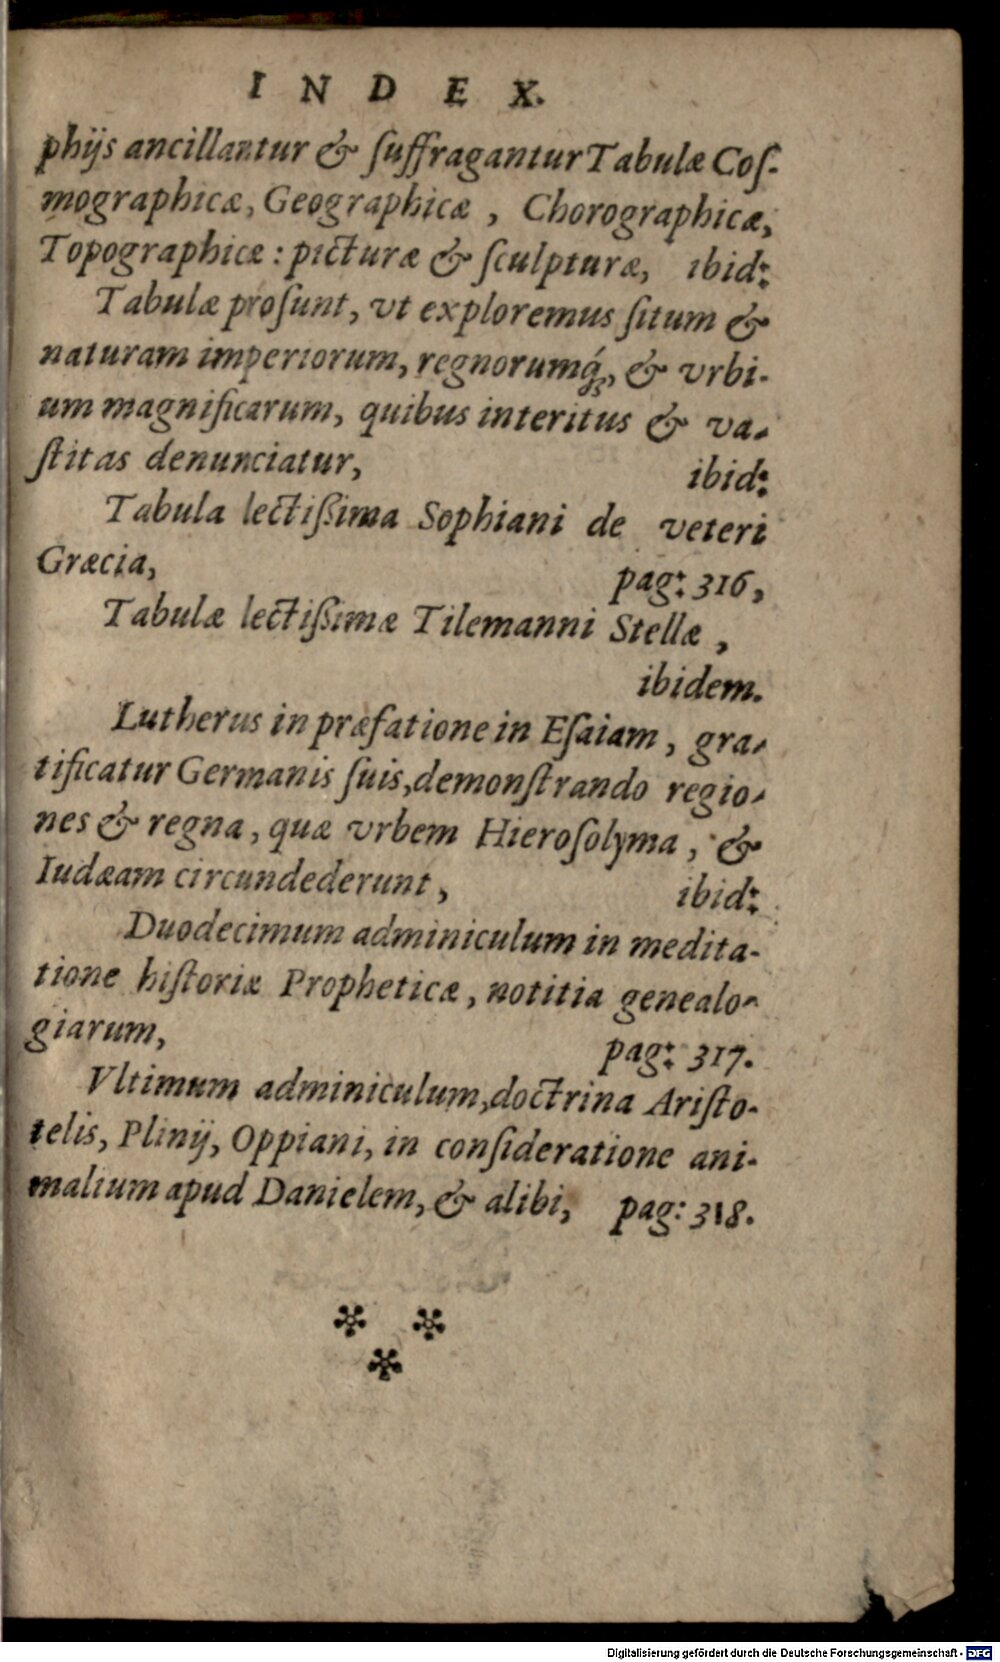 INDEX.
phijs ancillantur & ſuffragantur Tabulæ Coſ-
mographicæ, Geographicæ, Chorographicæ,
Topographicæ: picturæ & ſculpturæ, ibid:
Tabulæ proſunt, vt exploremus ſitum &
naturam imperiorum, regnorumq́;, & vrbi-
um magnificarum, quibus interitus & va-
ſtitas denunciatur, ibid:
Tabula lectißima Sophiani de veteri
Græcia, pag: 316,
Tabulæ lectißimæ Tilemanni Stellæ,
ibidem.
Lutherus in præfatione in Eſaiam, gra-
tificatur Germanis ſuis, demonſtrando regio-
nes & regna, quæ vrbem Hieroſolyma, &
Iudæam circundederunt, ibid:
Duodecimum adminiculum in medita-
tione hiſtoriæ Propheticæ, notitia genealo-
giarum, pag: 317.
Vltimum adminiculum, doctrina Ariſto-
telis, Plinij, Oppiani, in conſideratione ani-
malium apud Danielem, & alibi, pag: 318.
Digitalisierung gefördert durch die Deutsche Forschungsgemeinschaft - DFG